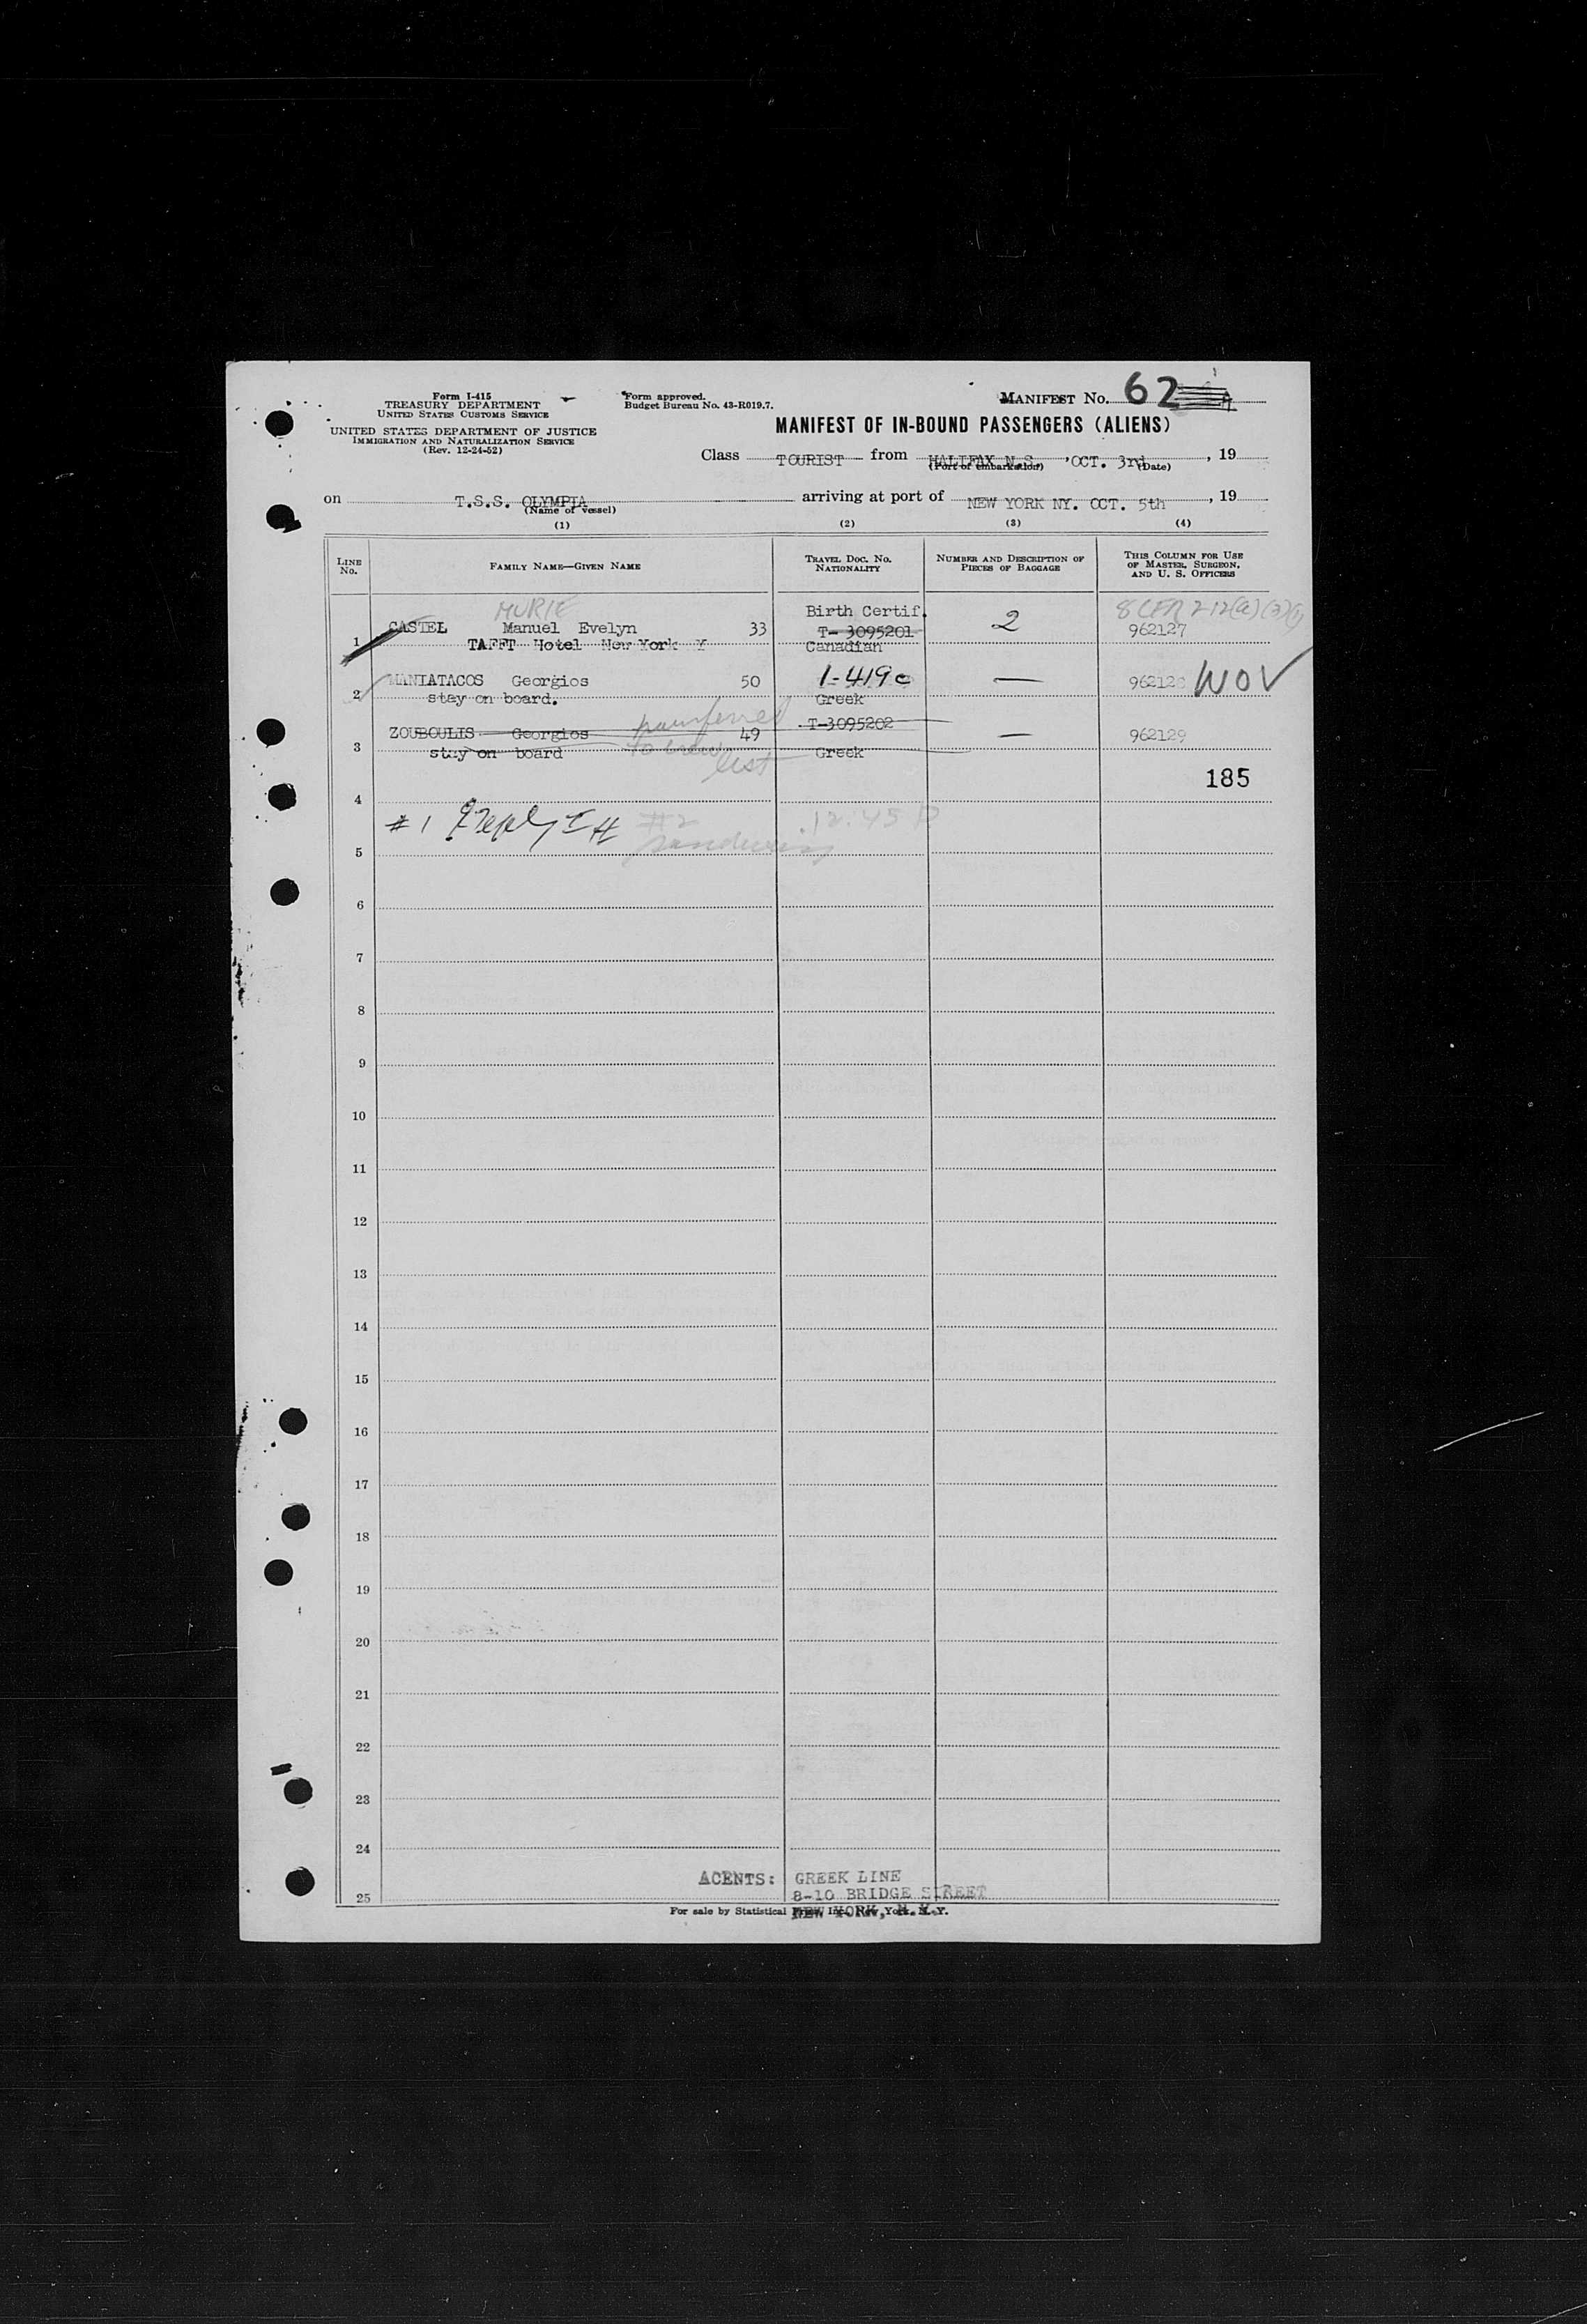 Form I-415
TREASURY DEPARTMENT
UNITED STATES CUSTOMS SERVICE
UNITED STATES DEPARTMENT OF JUSTICE
IMMIGRATION AND NATURALIZATION SERVICE
(Rev. 12-24-52)
Form approved.
Budget Bureau No. 43-R019.7.
MANIFEST NO. 62
MANIFEST OF IN-BOUND PASSENGERS (ALIENS)
Class TOURIST from HALIFAX N.S. OCT. 3rd, 19
(Port of embarkation) (Date)
on T.S.S. OLYMPIA arriving at port of NEW YORK NY. OCT. 5th, 19
(Name of vessel)
(1) (2) (3) (4)
LINE NO.
FAMILY NAME—GIVEN NAME
TRAVEL DOC. NO. NATIONALITY
NUMBER AND DESCRIPTION OF PIECES OF BAGGAGE
THIS COLUMN FOR USE OF MASTER, SURGEON, AND U. S. OFFICERS
MURIE Birth Certif. 8 CFR 212(a)
CASTEL Manuel Evelyn 33 T- 3095201 2 962127
1 TAFFT Hotel New York Y Canadian
MANIATACOS Georgios 50 1-419c — WOV
2 stay on board. Greek
transferred
ZOUBOULIS Georgios 49 T-3095202 — 962129
3 stay on board to crew Greek
list
185
4
#1 #2 12:45 P
5
6
7
8
9
10
11
12
13
14
15
16
17
18
19
20
21
22
23
24
ACENTS: GREEK LINE
8-10 BRIDGE STREET
25
For sale by Statistical
NEW YORK, N.Y.